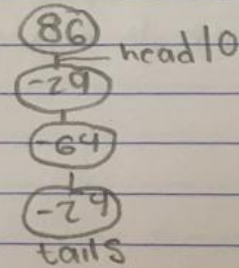 86
head/0
-29
-64
-29
tails